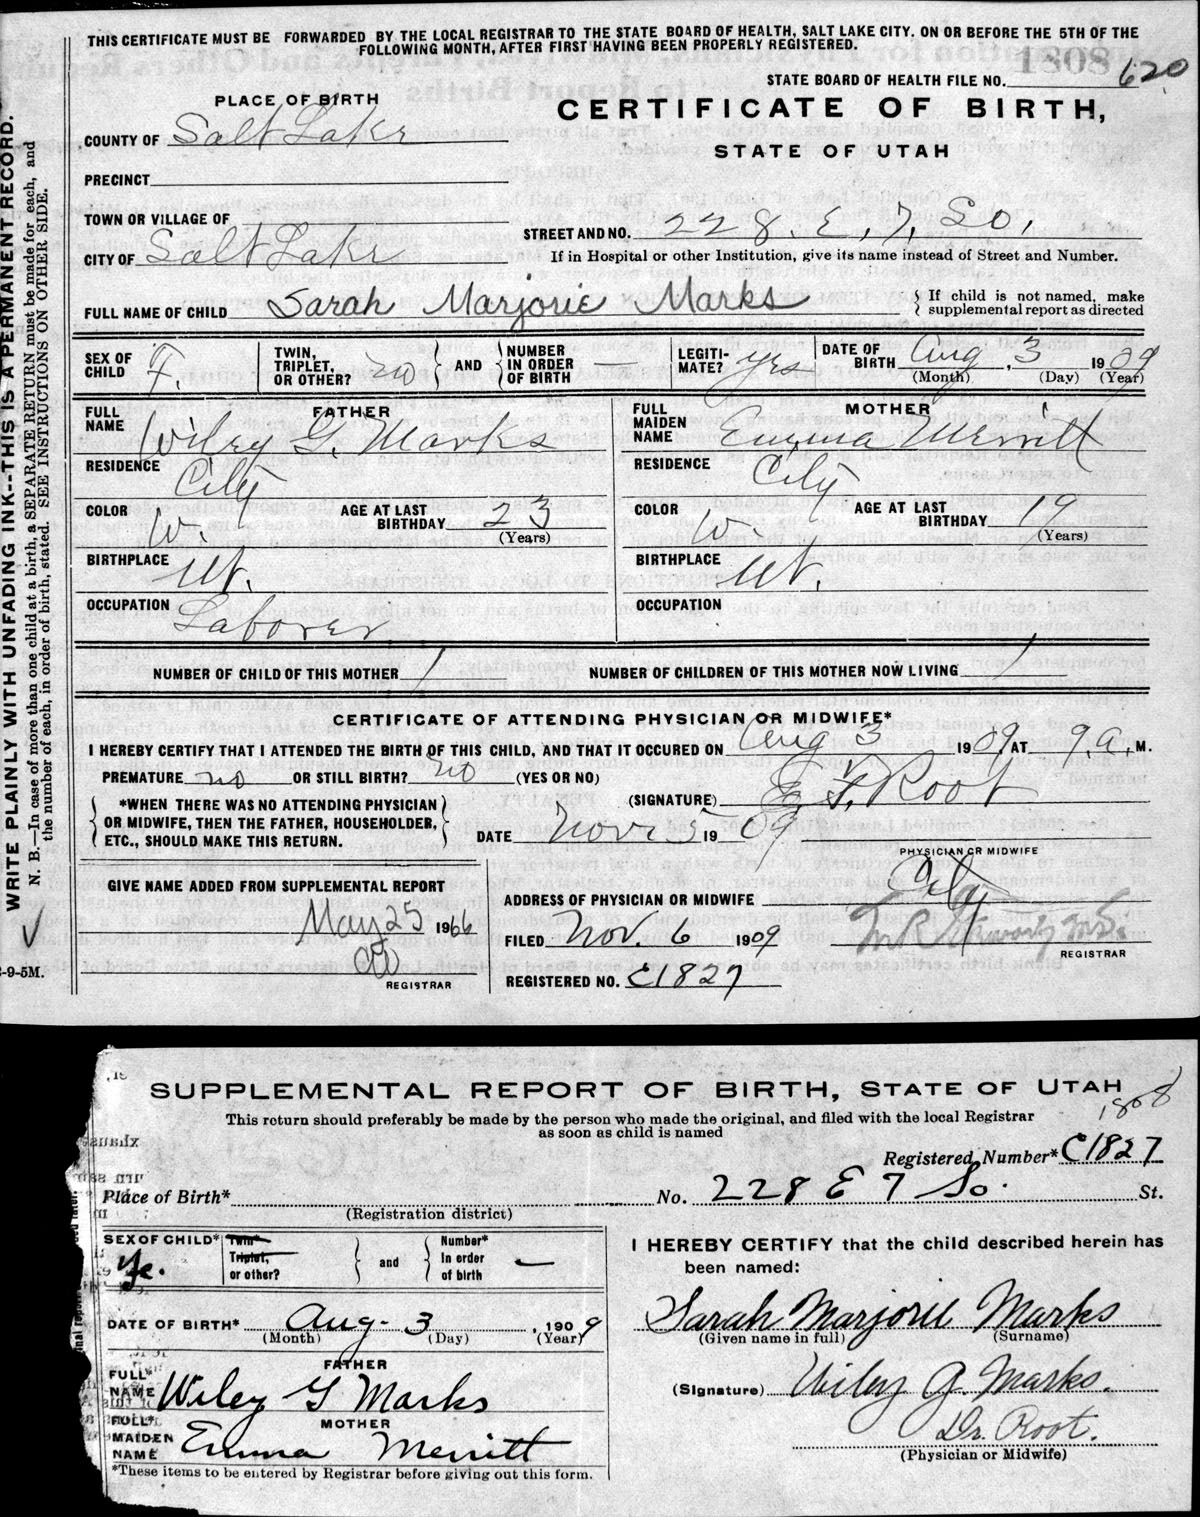 THIS CERTIFICATE MUST BE FORWARDED BY THE LOCAL REGISTRAR TO THE STATE BOARD OF HEALTH, SALT LAKE CITY, ON OR BEFORE THE 5TH OF THE
FOLLOWING MONTH, AFTER FIRST HAVING BEEN PROPERLY REGISTERED.
1808
STATE BOARD OF HEALTH FILE NO. 620
PLACE OF BIRTH
CERTIFICATE OF BIRTH,
STATE OF UTAH
COUNTY OF Salt Lake
PRECINCT
TOWN OR VILLAGE OF
STREET AND NO. 228. E. 7. So.
CITY OF Salt Lake
If in Hospital or other Institution, give its name instead of Street and Number.
FULL NAME OF CHILD Sarah Marjorie Marks
{ If child is not named, make
supplemental report as directed
SEX OF CHILD F.
TWIN, TRIPLET, OR OTHER? no } AND { NUMBER IN ORDER OF BIRTH —
LEGITIMATE? yes
DATE OF BIRTH Aug 3, 1909
(Month) (Day) (Year)
FATHER
FULL NAME Wiley G. Marks
RESIDENCE City
COLOR W. AGE AT LAST BIRTHDAY 23
(Years)
BIRTHPLACE Ut.
OCCUPATION Laborer
MOTHER
FULL MAIDEN NAME Emma Merritt
RESIDENCE City
COLOR W. AGE AT LAST BIRTHDAY 19
(Years)
BIRTHPLACE Ut.
OCCUPATION
NUMBER OF CHILD OF THIS MOTHER 1 NUMBER OF CHILDREN OF THIS MOTHER NOW LIVING 1
CERTIFICATE OF ATTENDING PHYSICIAN OR MIDWIFE*
I HEREBY CERTIFY THAT I ATTENDED THE BIRTH OF THIS CHILD, AND THAT IT OCCURED ON Aug 3 1909, AT 9 a. M.
PREMATURE no OR STILL BIRTH? no (YES OR NO)
*WHEN THERE WAS NO ATTENDING PHYSICIAN
OR MIDWIFE, THEN THE FATHER, HOUSEHOLDER,
ETC., SHOULD MAKE THIS RETURN.
(SIGNATURE) Root
DATE Nov 5 1909
PHYSICIAN OR MIDWIFE
GIVE NAME ADDED FROM SUPPLEMENTAL REPORT
May 25 1966
REGISTRAR
ADDRESS OF PHYSICIAN OR MIDWIFE City
FILED Nov. 6 1909
REGISTRAR
REGISTERED NO. C1827
WRITE PLAINLY WITH UNFADING INK--THIS IS A PERMANENT RECORD.
N. B.—In case of more than one child at a birth, a SEPARATE RETURN must be made for each, and
the number of each, in order of birth, stated. SEE INSTRUCTIONS ON OTHER SIDE.
-9-5M.
SUPPLEMENTAL REPORT OF BIRTH, STATE OF UTAH
1808
This return should preferably be made by the person who made the original, and filed with the local Registrar
as soon as child is named
Registered Number* C1827
Place of Birth* No. 228 E 7 So. St.
(Registration district)
SEX OF CHILD*
Twin*
Triplet,
or other? } and { Number*
In order
of birth —
DATE OF BIRTH* Aug. 3, 1909
(Month) (Day) (Year)
FATHER
FULL* NAME Wiley G Marks
MOTHER
FULL* MAIDEN NAME Emma Merritt
*These items to be entered by Registrar before giving out this form.
I HEREBY CERTIFY that the child described herein has
been named:
Sarah Marjorie Marks
(Given name in full) (Surname)
(Signature) Wiley G Marks.
Dr. Root.
(Physician or Midwife)